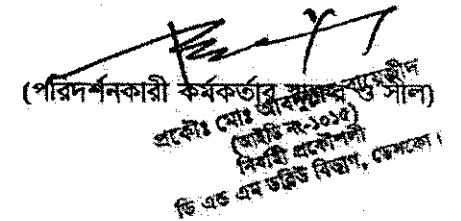 (পরিদর্শনকারী কর্মকর্তার স্বাক্ষর ও সীল)
প্রকৌঃ মোঃ
(আইডি নং-১০১৫)
নির্বাহী প্রকৌশলী
ডি এন্ড এম ডব্লিউ বিভাগ, ডেসকো।